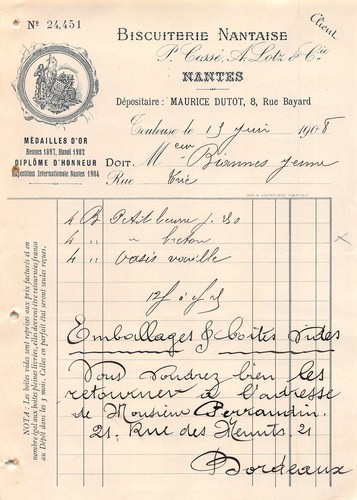 Nº 24,451
Client
BISCUITERIE NANTAISE
P. Cossé, A. Lotz & Cie
NANTES
Dépositaire : MAURICE DUTOT, 8, Rue Bayard
Toulouse le 15 juin 1908
MÉDAILLES D'OR
Rennes 1897, Hanoï 1902
DIPLÔME D'HONNEUR
Exposition Internationale Nantes 1904
DOIT, Meur Biannes jeune
Rue
4 B Petit beurre
4 " " breton
4 " oasis vanille
Emballages & boîtes vides
Vous voudrez bien les
retourner à l'adresse
de Monsieur Perraudin.
21. Rue des Menuts. 21
Bordeaux
NOTA : Les boîtes vides sont reprises aux prix facturés et en
nombre égal aux boîtes pleines livrées, elles devront être retournées franco
au Dépôt dans les 3 mois. Celles en parfait état seront seules reçues.